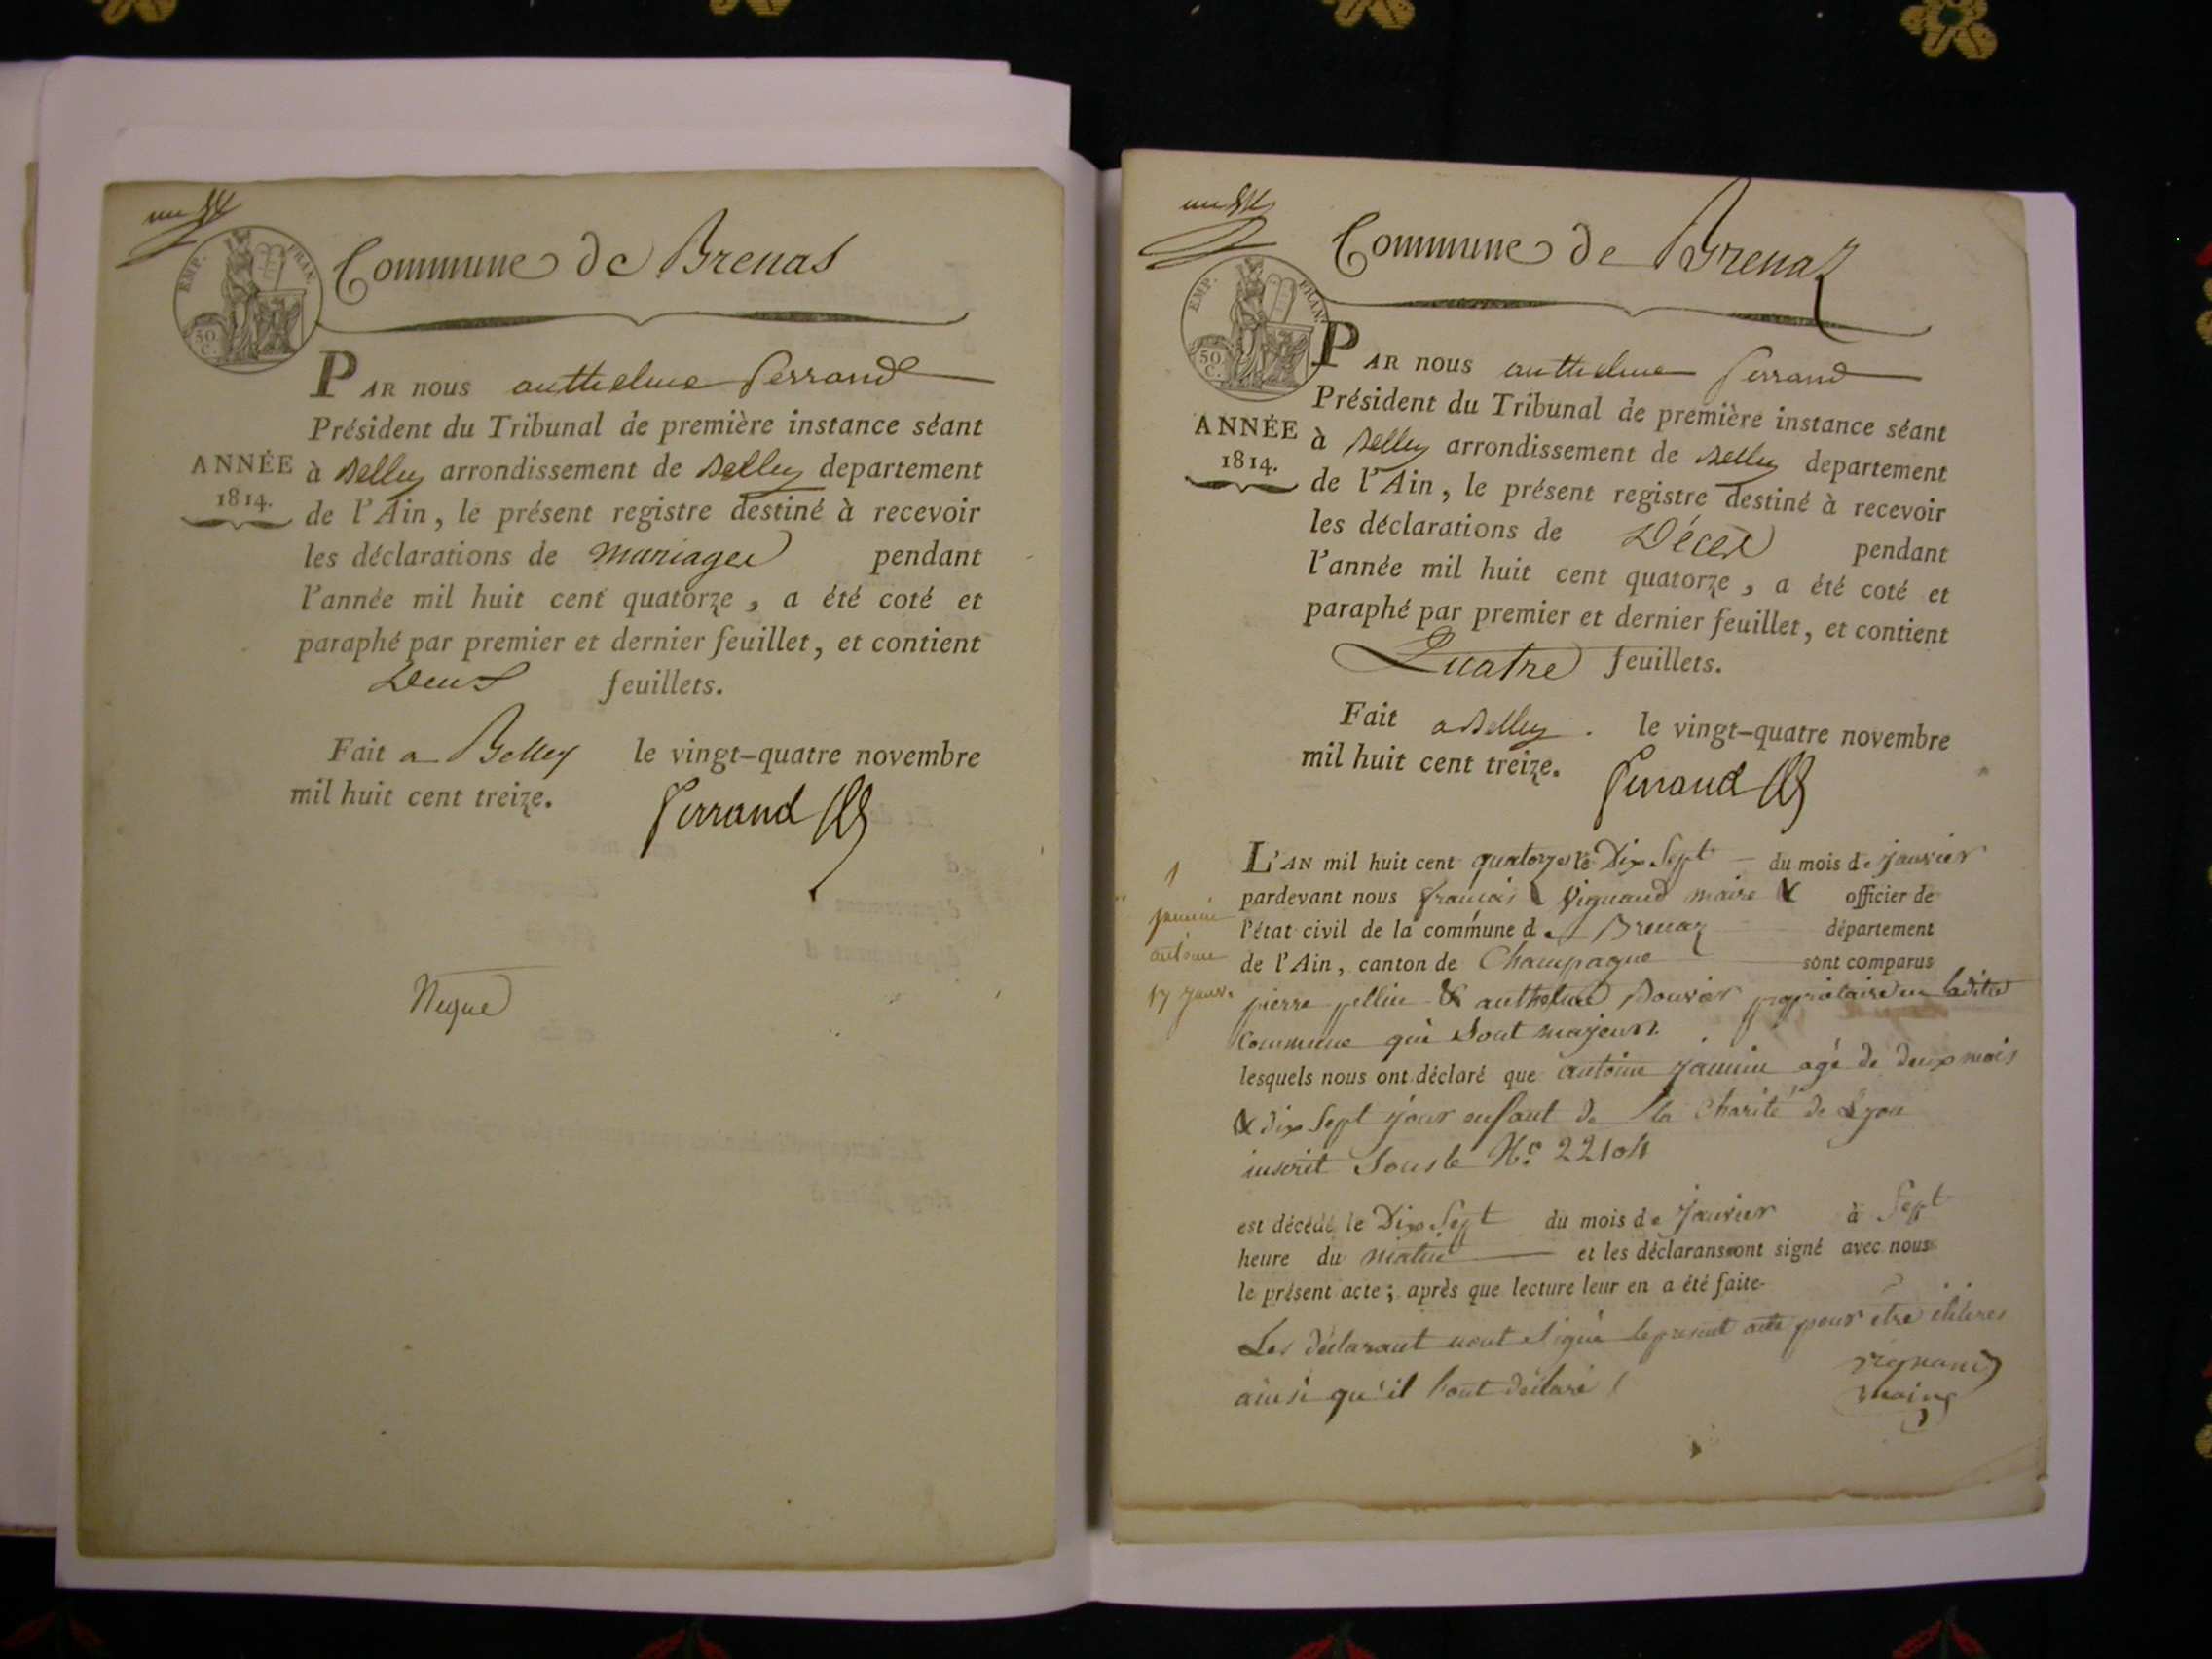 un
EMP. FRAN.
50 C.
Commune de Brenas
PAR nous anthelme ferrand
Président du Tribunal de première instance séant
ANNÉE
1814.
à Belley arrondissement de Belley departement
de l'Ain, le présent registre destiné à recevoir
les déclarations de mariages pendant
l'année mil huit cent quatorze, a été coté et
paraphé par premier et dernier feuillet, et contient
Deux feuillets.
Fait a Belley le vingt-quatre novembre
mil huit cent treize.
ferrand
un
EMP. FRAN.
50 C.
Commune de Brenaz
PAR nous anthelme ferrand
Président du Tribunal de première instance séant
ANNÉE
1814.
à Belley arrondissement de Belley departement
de l'Ain, le présent registre destiné à recevoir
les déclarations de Décès pendant
l'année mil huit cent quatorze, a été coté et
paraphé par premier et dernier feuillet, et contient
Quatre feuillets.
Fait a Belley . le vingt-quatre novembre
mil huit cent treize.
ferrand
1
janin
antoine
17 janv.
L'AN mil huit cent quatorze le Dix Sept du mois de janvier
pardevant nous françois Vignand maire & officier de
l'état civil de la commune de Brenaz département
de l'Ain, canton de Champagne sont comparus
pierre pellin & anthelme Bouvier propriétaire en ladite
Commune qui Sont majeurs
lesquels nous ont déclaré que antoine janin agé de deux mois
& dix Sept jour enfant de la Charité de Lyon
inscrit Sous le No. 22104
est décédé le Dix Sept du mois de janvier à Sept
heure du matin et les déclarans ont signé avec nous
le présent acte; après que lecture leur en a été faite
Les déclarant nont Signé le présent acte pour être iliteres
ainsi qu'il l'ont déclaré
vignand
maire